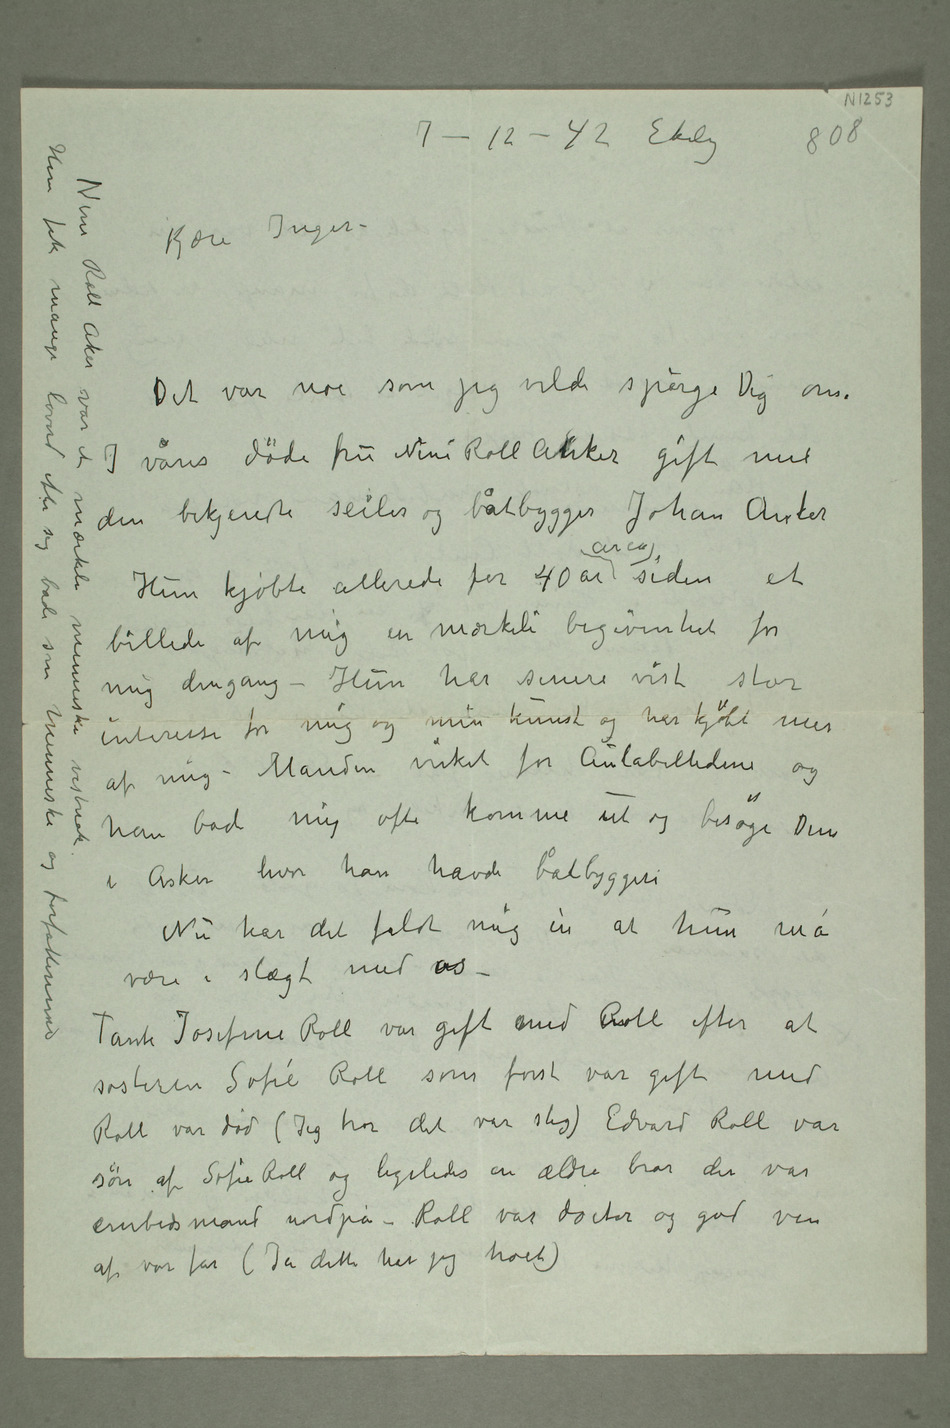 N1253
7 – 12 – 42 Ekely 808
Kjære Inger –
Det var noe som jeg vilde spørge Dig om.
I våres döde fru Nini Roll Anker gift med
den bekjendte seiler og båtbygger Johan Anker
Hun kjöbte allerede for 40 år (circa) siden et
billede af mig en mærkeli begivenhet for
mig dengang – Hun har senere vist stor
interesse for mig og min kunst og har kjöbt mer
af mig – Manden virket for Aulabilledene og
han bad mig ofte komme ut og besöge Dem
i Asker hvor han havde båtbyggeri
Nu har det faldt mig in at hun må
være i slægt med os –
Tante Josefine Roll var gift med Roll efter at
søsteren Sofie Roll som først var gift med
Roll var död (Jeg tror det var slig) Edvard Roll var
sön af Sofie Roll og ligeledes en ældre bror der var
embedsmand nordpå – Roll var doctor og god ven
af vor far (Ja dette har jeg hört)
Nini Roll Anker var et mærkeli menneske vistnok.
Hun fik mange lovord efter sig både som menneske og forfatterinde